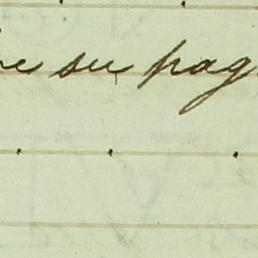 su pag